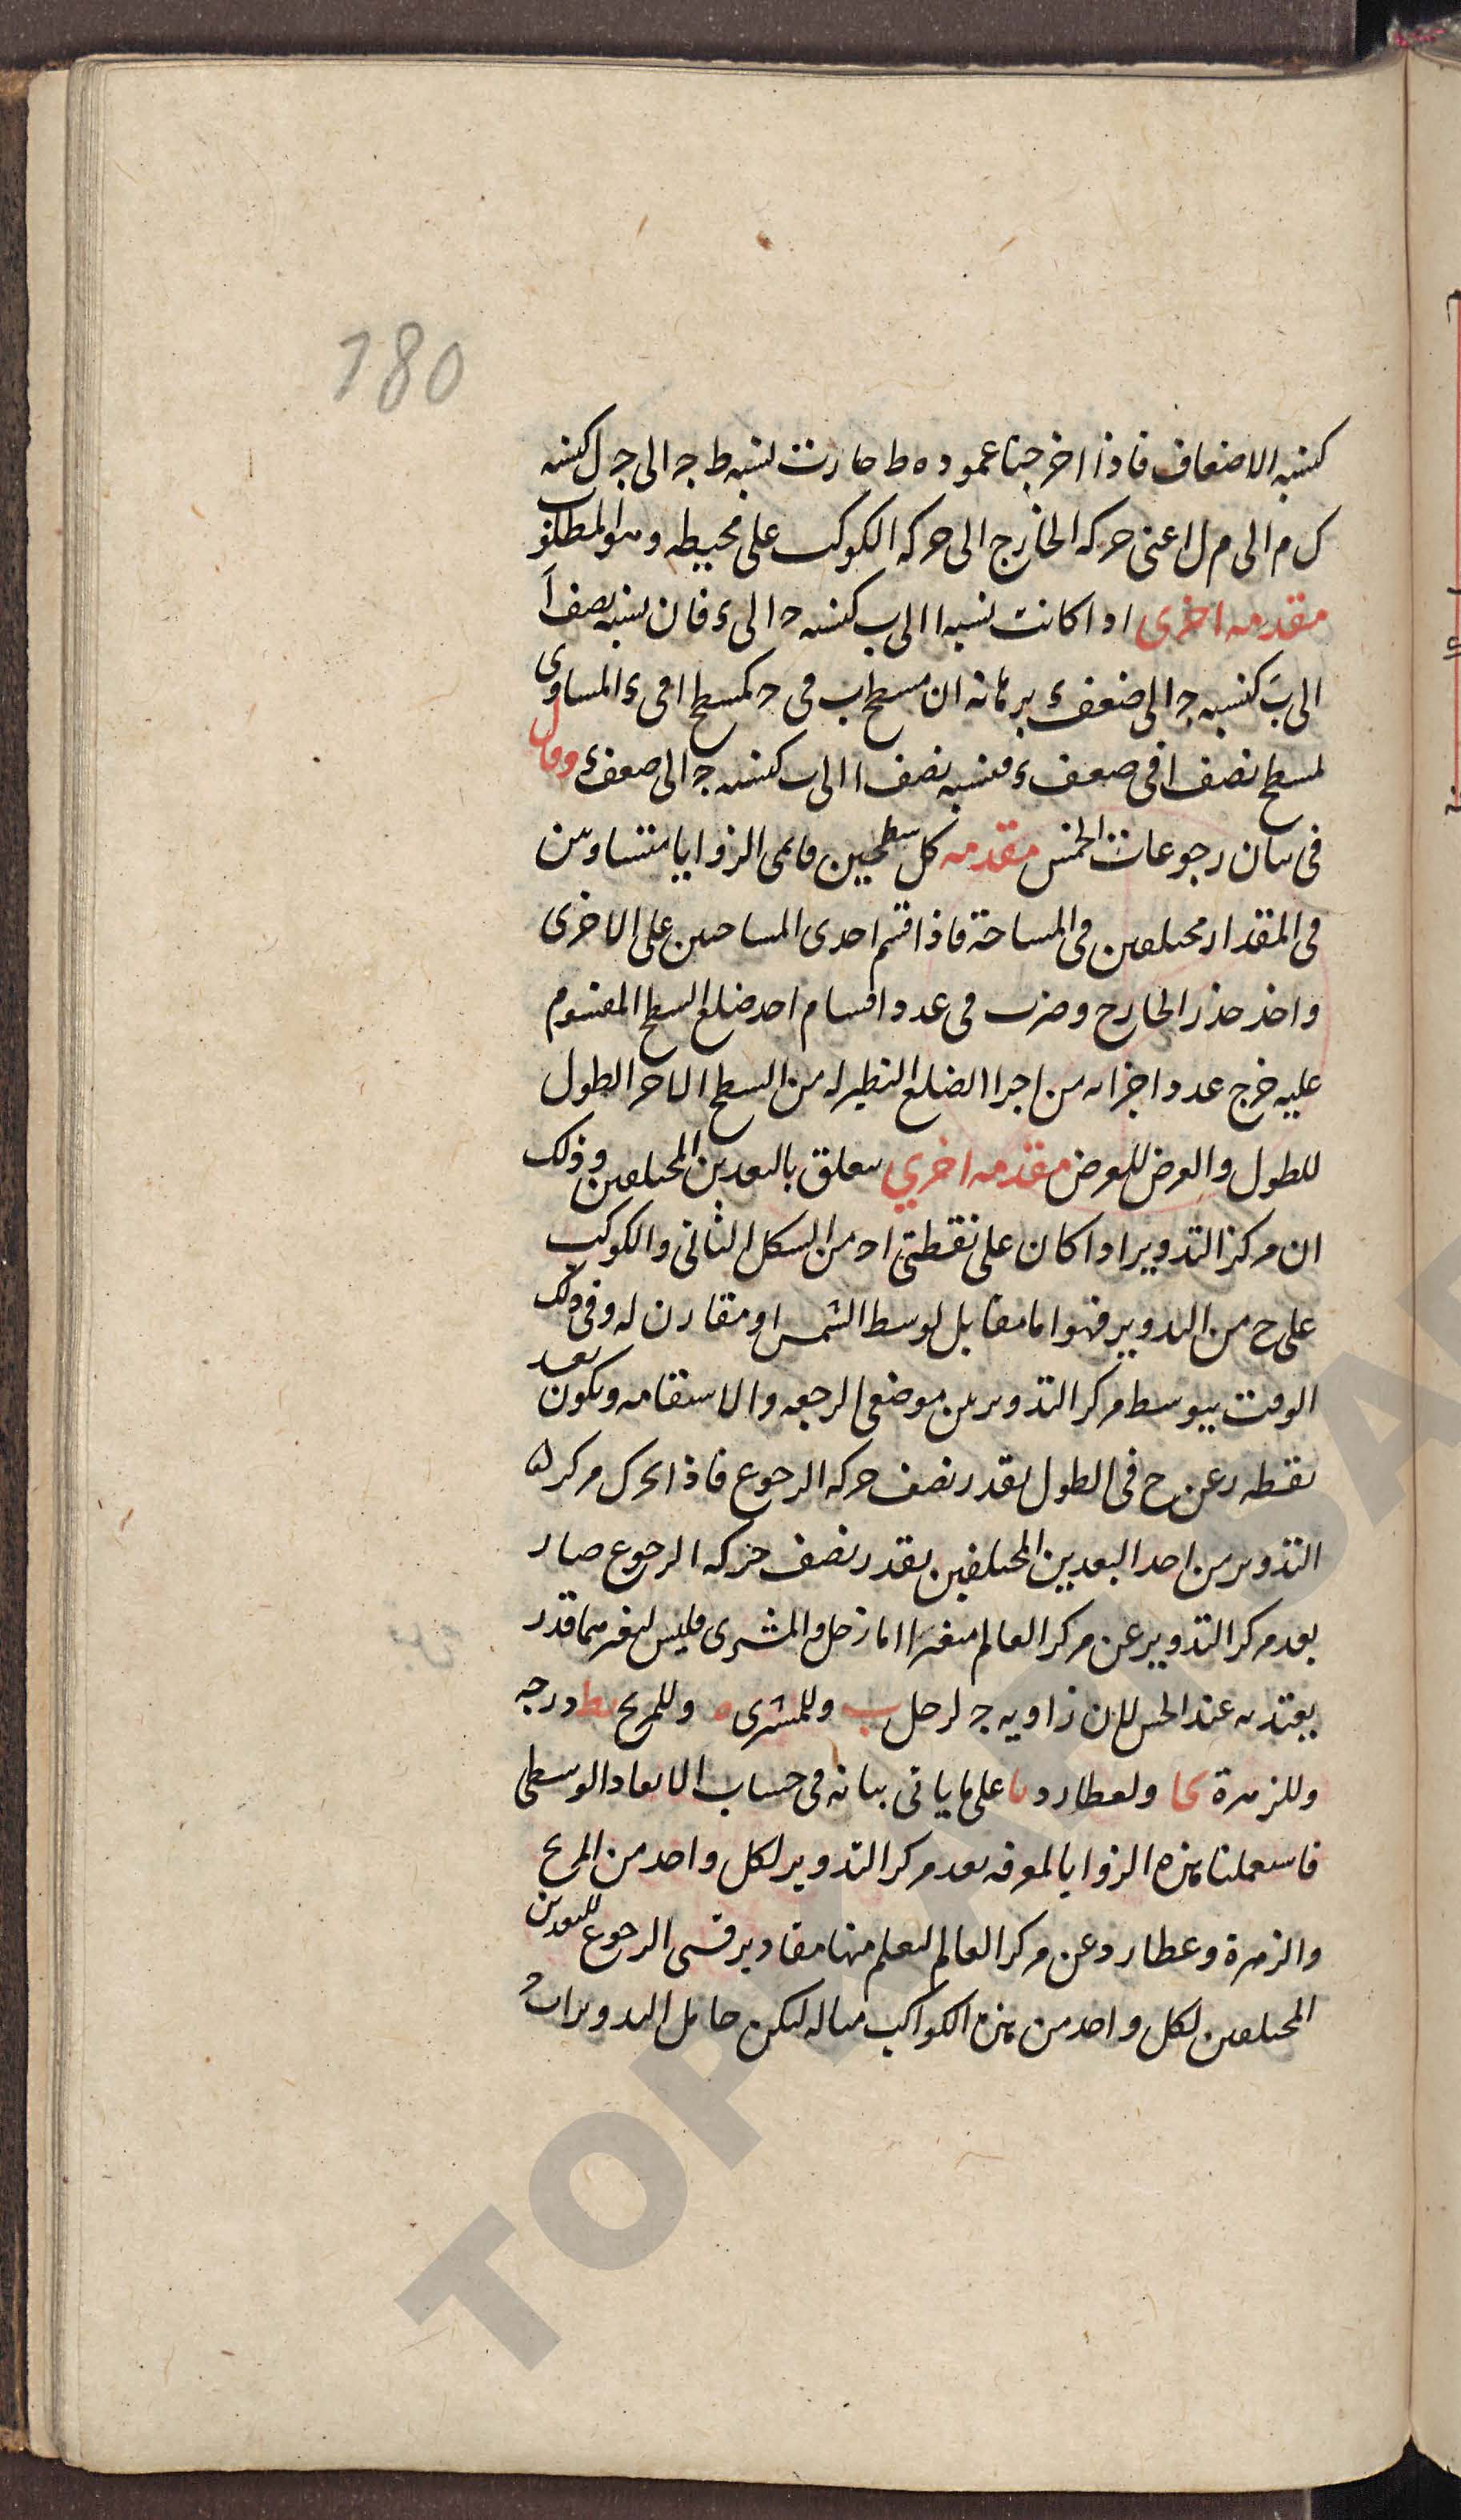 180
كنسبه الاضعاف فاذا اخرجنا عمود ه ط صارت نسبه ط جـ الى جـ ل كنسبه
ك م الى م ل اعنى حركه الخارج الى حركه الكوكب على محيطه وهو المطلوب
مقدمه اخرى اذا كانت نسبه ا الى ب كنسبه حـ الى ء فان نسبه نصف ا
الى ب كنسبه جـ الى ضعف ء برهانه ان مسطح ب فى حـ كمسطح ا فى ء المساوى
لمسطح نصف ا فى ضعف ء فنسبه نصف ا الى ب كنسبه جـ الى ضعف ء وقال
فى بيان رجوعات الخمس مقدمه كل سطحين قائمى الزوايا متساويين
فى المقدار مختلفين فى المساحة فاذا قسم احدى المساحتين على الاخرى
واخذ جذر الخارج وضرب فى عدد اقسام احد ضلع السطح المقسوم
عليه خرج عدد اجزائه من اجزا الضلع النظير له من السطح الاخر الطول
للطول والعرض للعرض مقدمه اخري يتعلق بالبعدين المختلفين وذلك
ان مركز التدوير اذا كان على نقطتى ا حـ من الشكل الثانى والكوكب
على ح من التدوير فهو اما مقابل لوسط الشمس او مقارن له وفى ذلك
الوقت يتوسط مركز التدوير بين موضعى الرجعه والاستقامه ويكون بعد
نقطه ر عن ح فى الطول بقدر نصف حركه الرجوع فاذا تحرك مركز
التدوير من احد البعدين المختلفين بقدر نصف حركه الرجوع صار
بعد مركز التدوير عن مركز العالم متغيرا اما زحل والمشترى فليس لتغيرهما قدر
يعتد به عند الحس لان زاويه جـ لزحل ب وللمشترى ه وللمريخ يط درجه
وللزهرة كا ولعطارد يا على ما ياتى بيانه فى حساب الابعاد الوسطى
فاستعملنا هذه الزوايا لمعرفه بعد مركز التدوير لكل واحد من المريخ
والزهرة وعطارد عن مركز العالم لنعلم منها مقادير قسى الرجوع للبعدين
المختلفين لكل واحد من هذه الكواكب مثاله ليكن حامل التدوير ا ب حـ